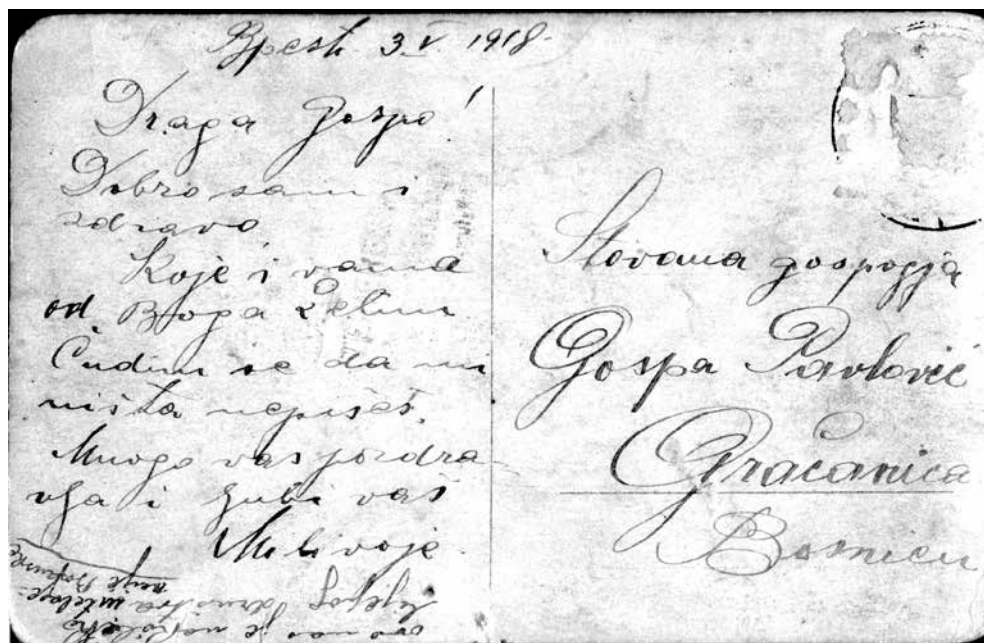 Bpest. 3.V. 1918.
Draga Gospo!
Dobro sam i
zdravo
Koje i vama
od Boga želim
Čudim se da mi
ništa nepišeš.
Mnogo vas pozdra-
vlja i ljubi vaš
Milivoje
Štovana gospogja
Gospa Pavlović
Gračanica
Bosnien